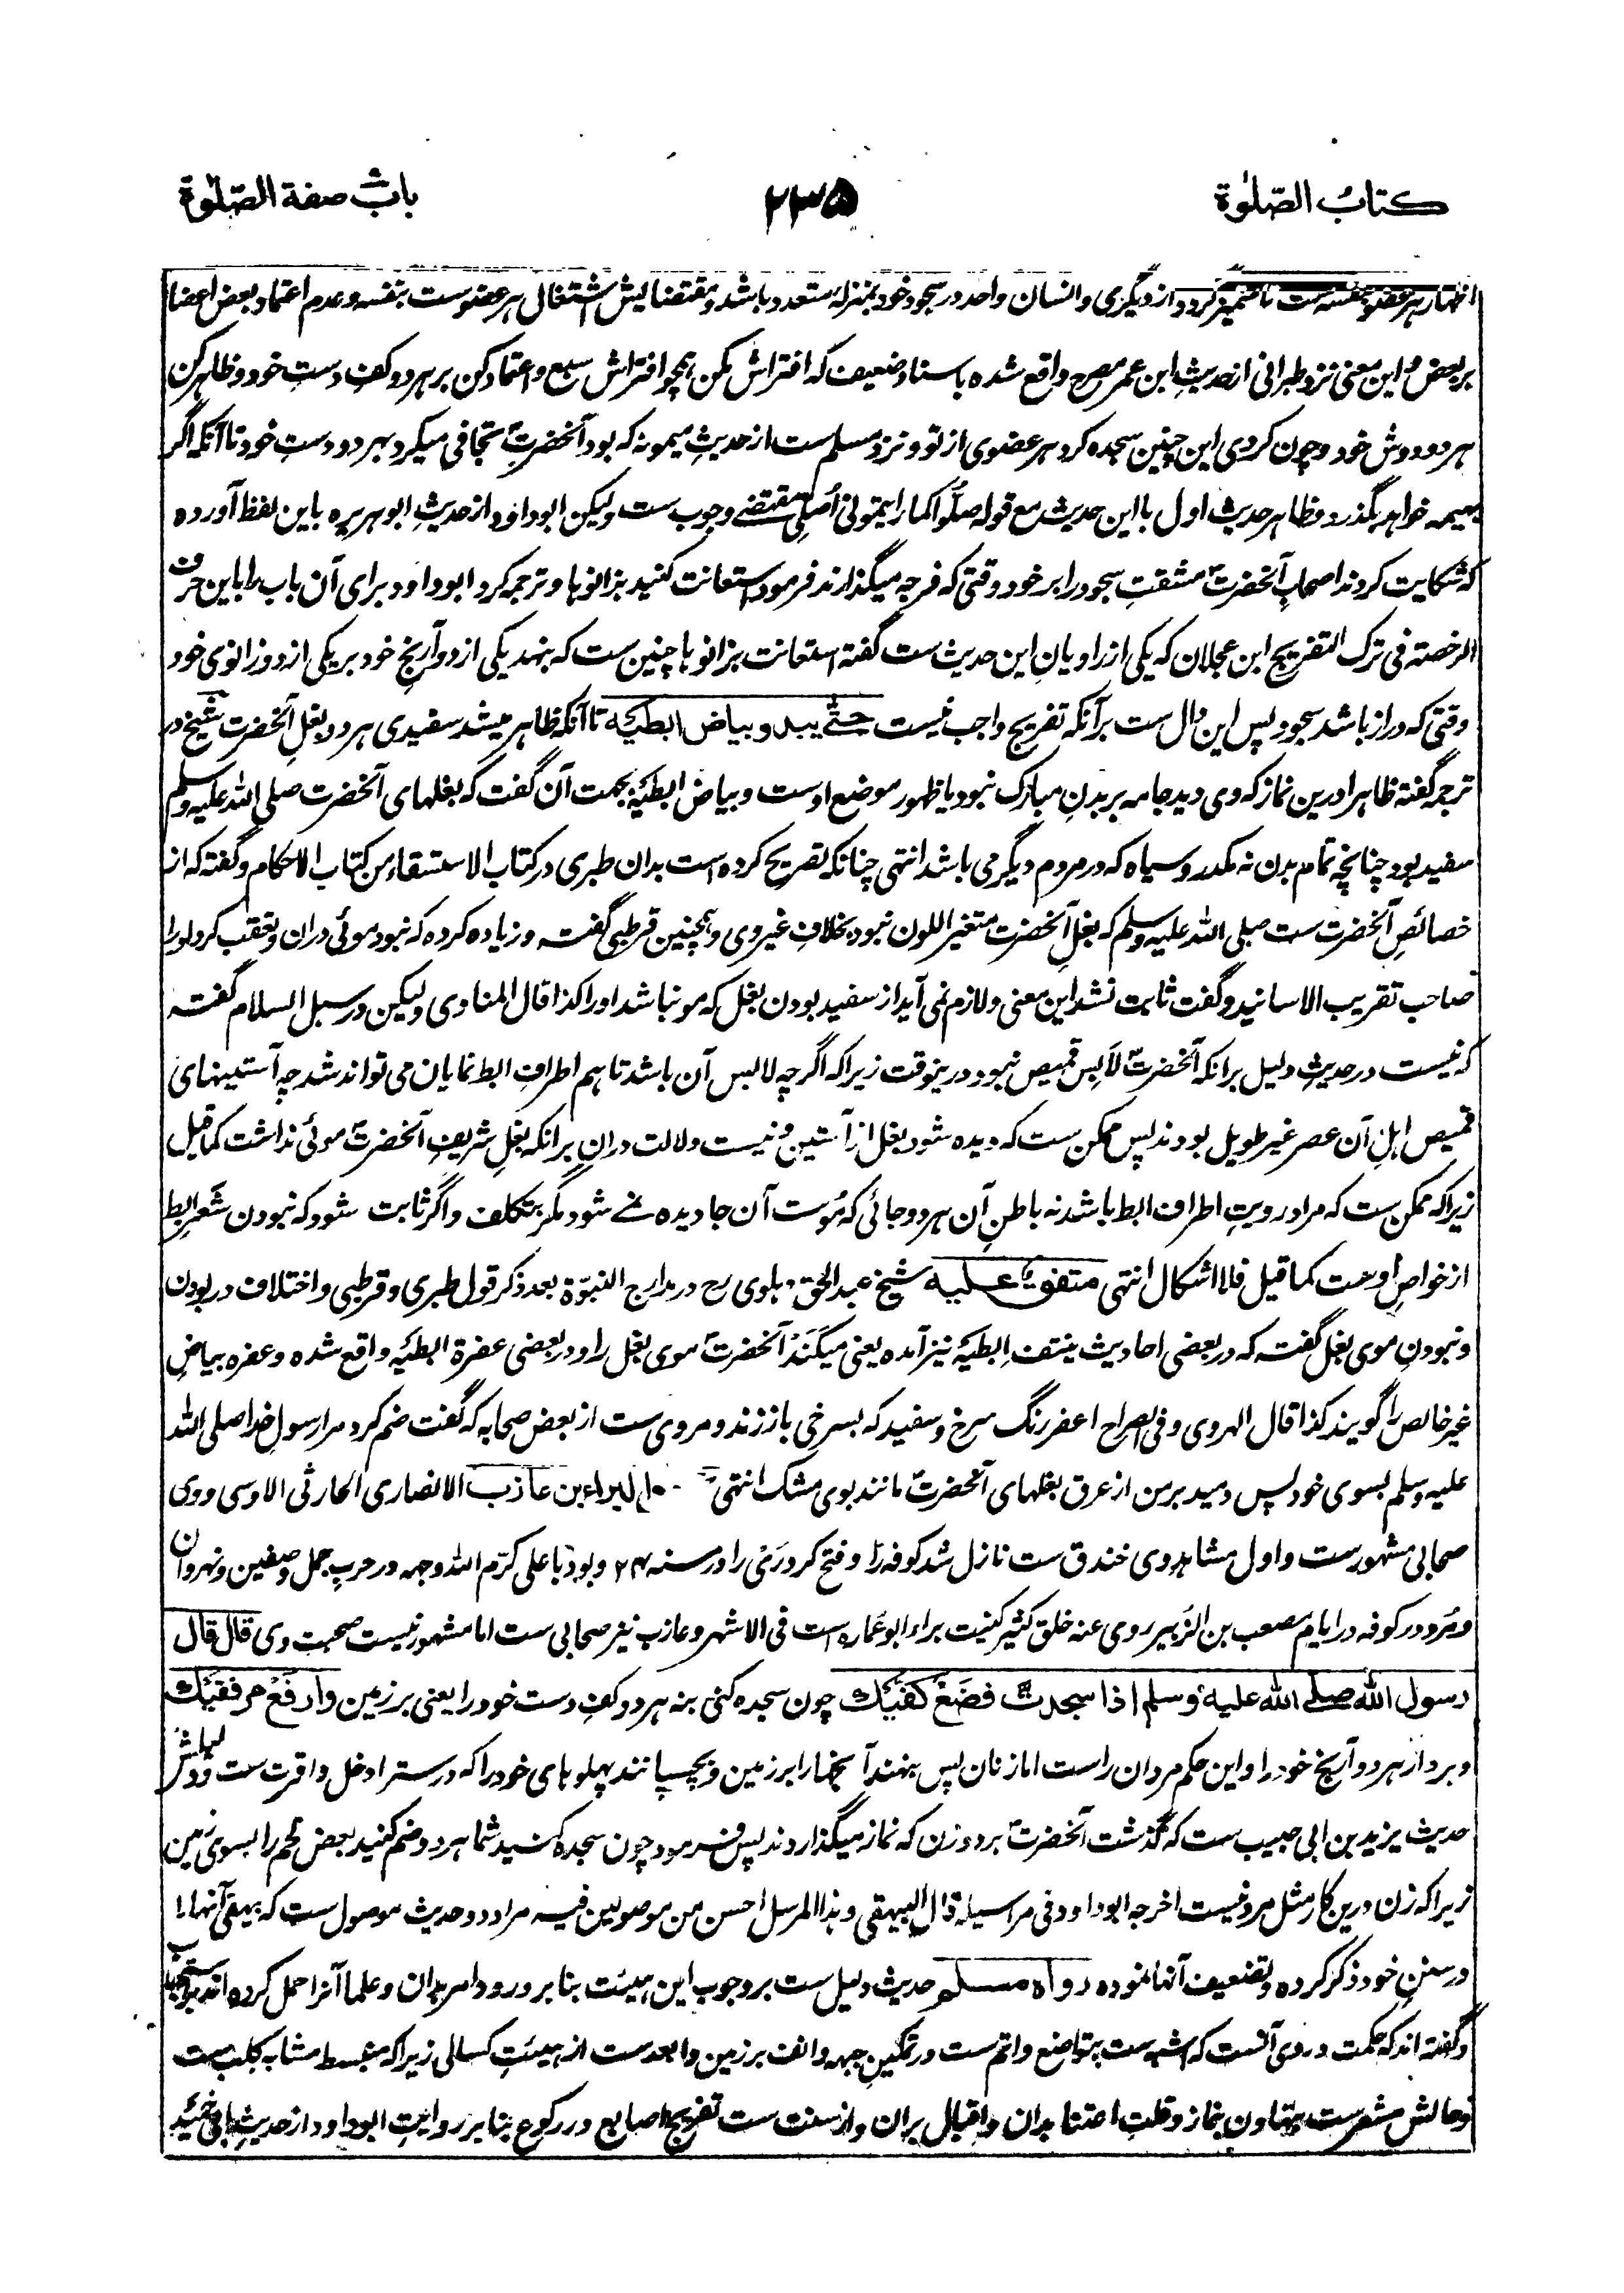 كتاب الصلوٰة
٢٣٥
باب صفة الصلوٰة
اظهار هر عضو بنفسه ست تا متمیز گردد از دیگری و انسان واحد در سجود خود بمنزله متعدد باشد و مقتضایش اشتغال هر عضوست بنفسه و عدم اعتماد بعض اعضا
بر بعض و این معنی نزد طبرانی از حدیثِ ابن عمر مصرح واقع شده باسناد ضعیف که افتراش مکن همچو افتراش سبع و اعتماد کن بر هر دو کفِ دستِ خود و ظاهر کن
هر دو دوش خود و چون کردی این چنین سجده کرد هر عضوی از تو و نزد مسلم ست از حدیثِ میمونه که بود آنحضرتؐ تجافی میکرد بهر دو دستِ خود تا آنکه اگر
بهیمه خواهد بگذرد و ظاهر حدیث اول با این حدیث مع قوله صلّوا کما رایتمونی اُصلی مقتضے وجوب ست ولیکن ابوداود از حدیثِ ابوهریره باین لفظ آورده
که شکایت کردند اصحابِ آنحضرتؐ مشقتِ سجود را بر خود وقتی که فرجه میگذارند فرمود استعانت کنید بزانوها و ترجمه کرد ابوداود برای آن باب را باین حرف
الرخصته فی ترک التفریج ابن عجلان که یکی از راویانِ این حدیث ست گفته استعانت بزانوها چنین ست که بنهد یکی از دو آرنجِ خود بر یکی از دو زانوی خود
وقتی که دراز باشد سجود پس این دال ست بر آنکه تفریج واجب نیست حتّٰے یبدو بیاض ابطیه تا آنکه ظاهر میشد سفیدی هر دو بغلِ آنحضرت شیخ در
ترجمه گفته ظاهرا درین نماز که وی دید جامه بر بدنِ مبارک نبود یا ظهور موضع اوست و بیاض ابطیه بجهت آن گفت که بغلهای آنحضرت صلی الله علیه وسلم
سفید بود چنانچه تمام بدن نه مکدر و سیاه که در مردم دیگر می باشد انتهی چنانکه تصریح کرده ست بدان طبری در کتاب الاستسقاء من کتاب الاحکام و گفته که از
خصائصِ آنحضرت ست صلی الله علیه وسلم که بغلِ آنحضرت متغیر اللون نبود بخلافِ غیر وی و همچنین قرطبی گفته و زیاده کرده که نبود موئی دران و تعقب کرد او را
صاحب تقریب الاسانید و گفت ثابت نشد این معنی و لازم نمی آید از سفید بودن بغل که مو نباشد او را کذا قال المناوی ولیکن در سبل السلام گفته
که نیست در حدیث دلیل بر آنکه آنحضرتؐ لابِس قمیص نبود درینوقت زیرا که اگرچه لابس آن باشد تا هم اطرافِ ابط نمایان می تواند شد چه آستینهای
قمیص اهلِ آن عصر غیر طویل بودند پس ممکن ست که دیده شود بغل از آستین و نیست دلالت دران بر آنکه بغلِ شریفِ آنحضرتؐ موئی نداشت کما قیل
زیرا که ممکن ست که مراد رویتِ اطراف ابط باشد نه باطنِ آن هر دو جائی که مُوست آن جا دیده نے شود مگر بتکلف و اگر ثابت شود که نبودن شعرِ ابط
از خواصِ اوست کما قیل فلا اشکال انتهی متفق علیه شیخ عبدالحق دهلوی رح در مدارج النبوّة بعد ذکر قول طبری و قرطبی و اختلاف در بودن
و نبودنِ موی بغل گفته که در بعضی احادیث ینتف اِبطیه نیز آمده یعنی میکَنَد آنحضرتؐ موی بغل را و در بعضی عفرة ابطیه واقع شده و عفره بیاضِ
غیر خالص را گویند کذا قال الهروی و فی الصراح اعفر رنگ سرخ و سفید که بسرخی باز زند و مروی ست از بعض صحابه که گفت ضم کرد مرا رسولِ خدا صلی الله
علیه وسلم بسوی خود پس دمید بر من از عرق بغلهای آنحضرتؐ مانند بوی مشک انتهی البراء بن عازب الانصاری الحارثی الاوسی و وی
صحابی مشهور ست و اول مشاهد وی خندق ست نازل شد کوفه را و فتح کرد رَی را در سنه ٢٤ و بود با علی کرّم الله وجهه در حربِ جمل و صفین و نهروان
و مُرد در کوفه در ایام مصعب بن الزُبیر روی عنه خلق کثیر کنیت براء ابوعماره است فی الاشهر و عازب نیز صحابی ست اما مشهور نیست صحبت وی قال قال
رسول الله صلے الله علیه وسلم اذا سجدت فضَعْ کفیك چون سجده کنی بنه هر دو کفِ دست خود را یعنی بر زمین وارفَعْ مرفقیك
و بردار هر دو آرنج خود را و این حکم مردان راست اما زنان پس بنهند آرنجها را بر زمین و بچسپانند پهلوهای خود را که در ستر ادخل و اقرب ست و دلیلش
حدیث یزید بن ابی حبیب ست که گذشت آنحضرتؐ بر دو زن که نماز میگذاردند پس فرمود چون سجده کنید شما هر دو ضم کنید بعض لحم را بسوی زمین
زیرا که زن درین کار مثل مرد نیست اخرجه ابوداود فی مراسیله قال البیهقی و هذا المرسل احسن من موصولین فیه مراد دو حدیث موصول ست که بیهقی آنها را
در سنن خود ذکر کرده و تضعیف آنها نموده رواه مسلم حدیث دلیل ست بر وجوبِ این هیئت بنا بر ورود امر بدان و علما آنرا حمل کرده اند بر استحباب
و گفته اند که حکمت در وی آنست که اشبه ست بتواضع و اتم ست در تمکینِ جبهه و انف بر زمین و ابعد ست از هیئتِ کسالی زیرا که منبسط مشابه کلب ست
و حالش مشعر ست بتهاون بنماز و قلتِ اعتنا بدان و اقبال بران و از سنت ست تفریج اصابع در رکوع بنا بر روایتِ ابوداود از حدیثِ ابی حمید